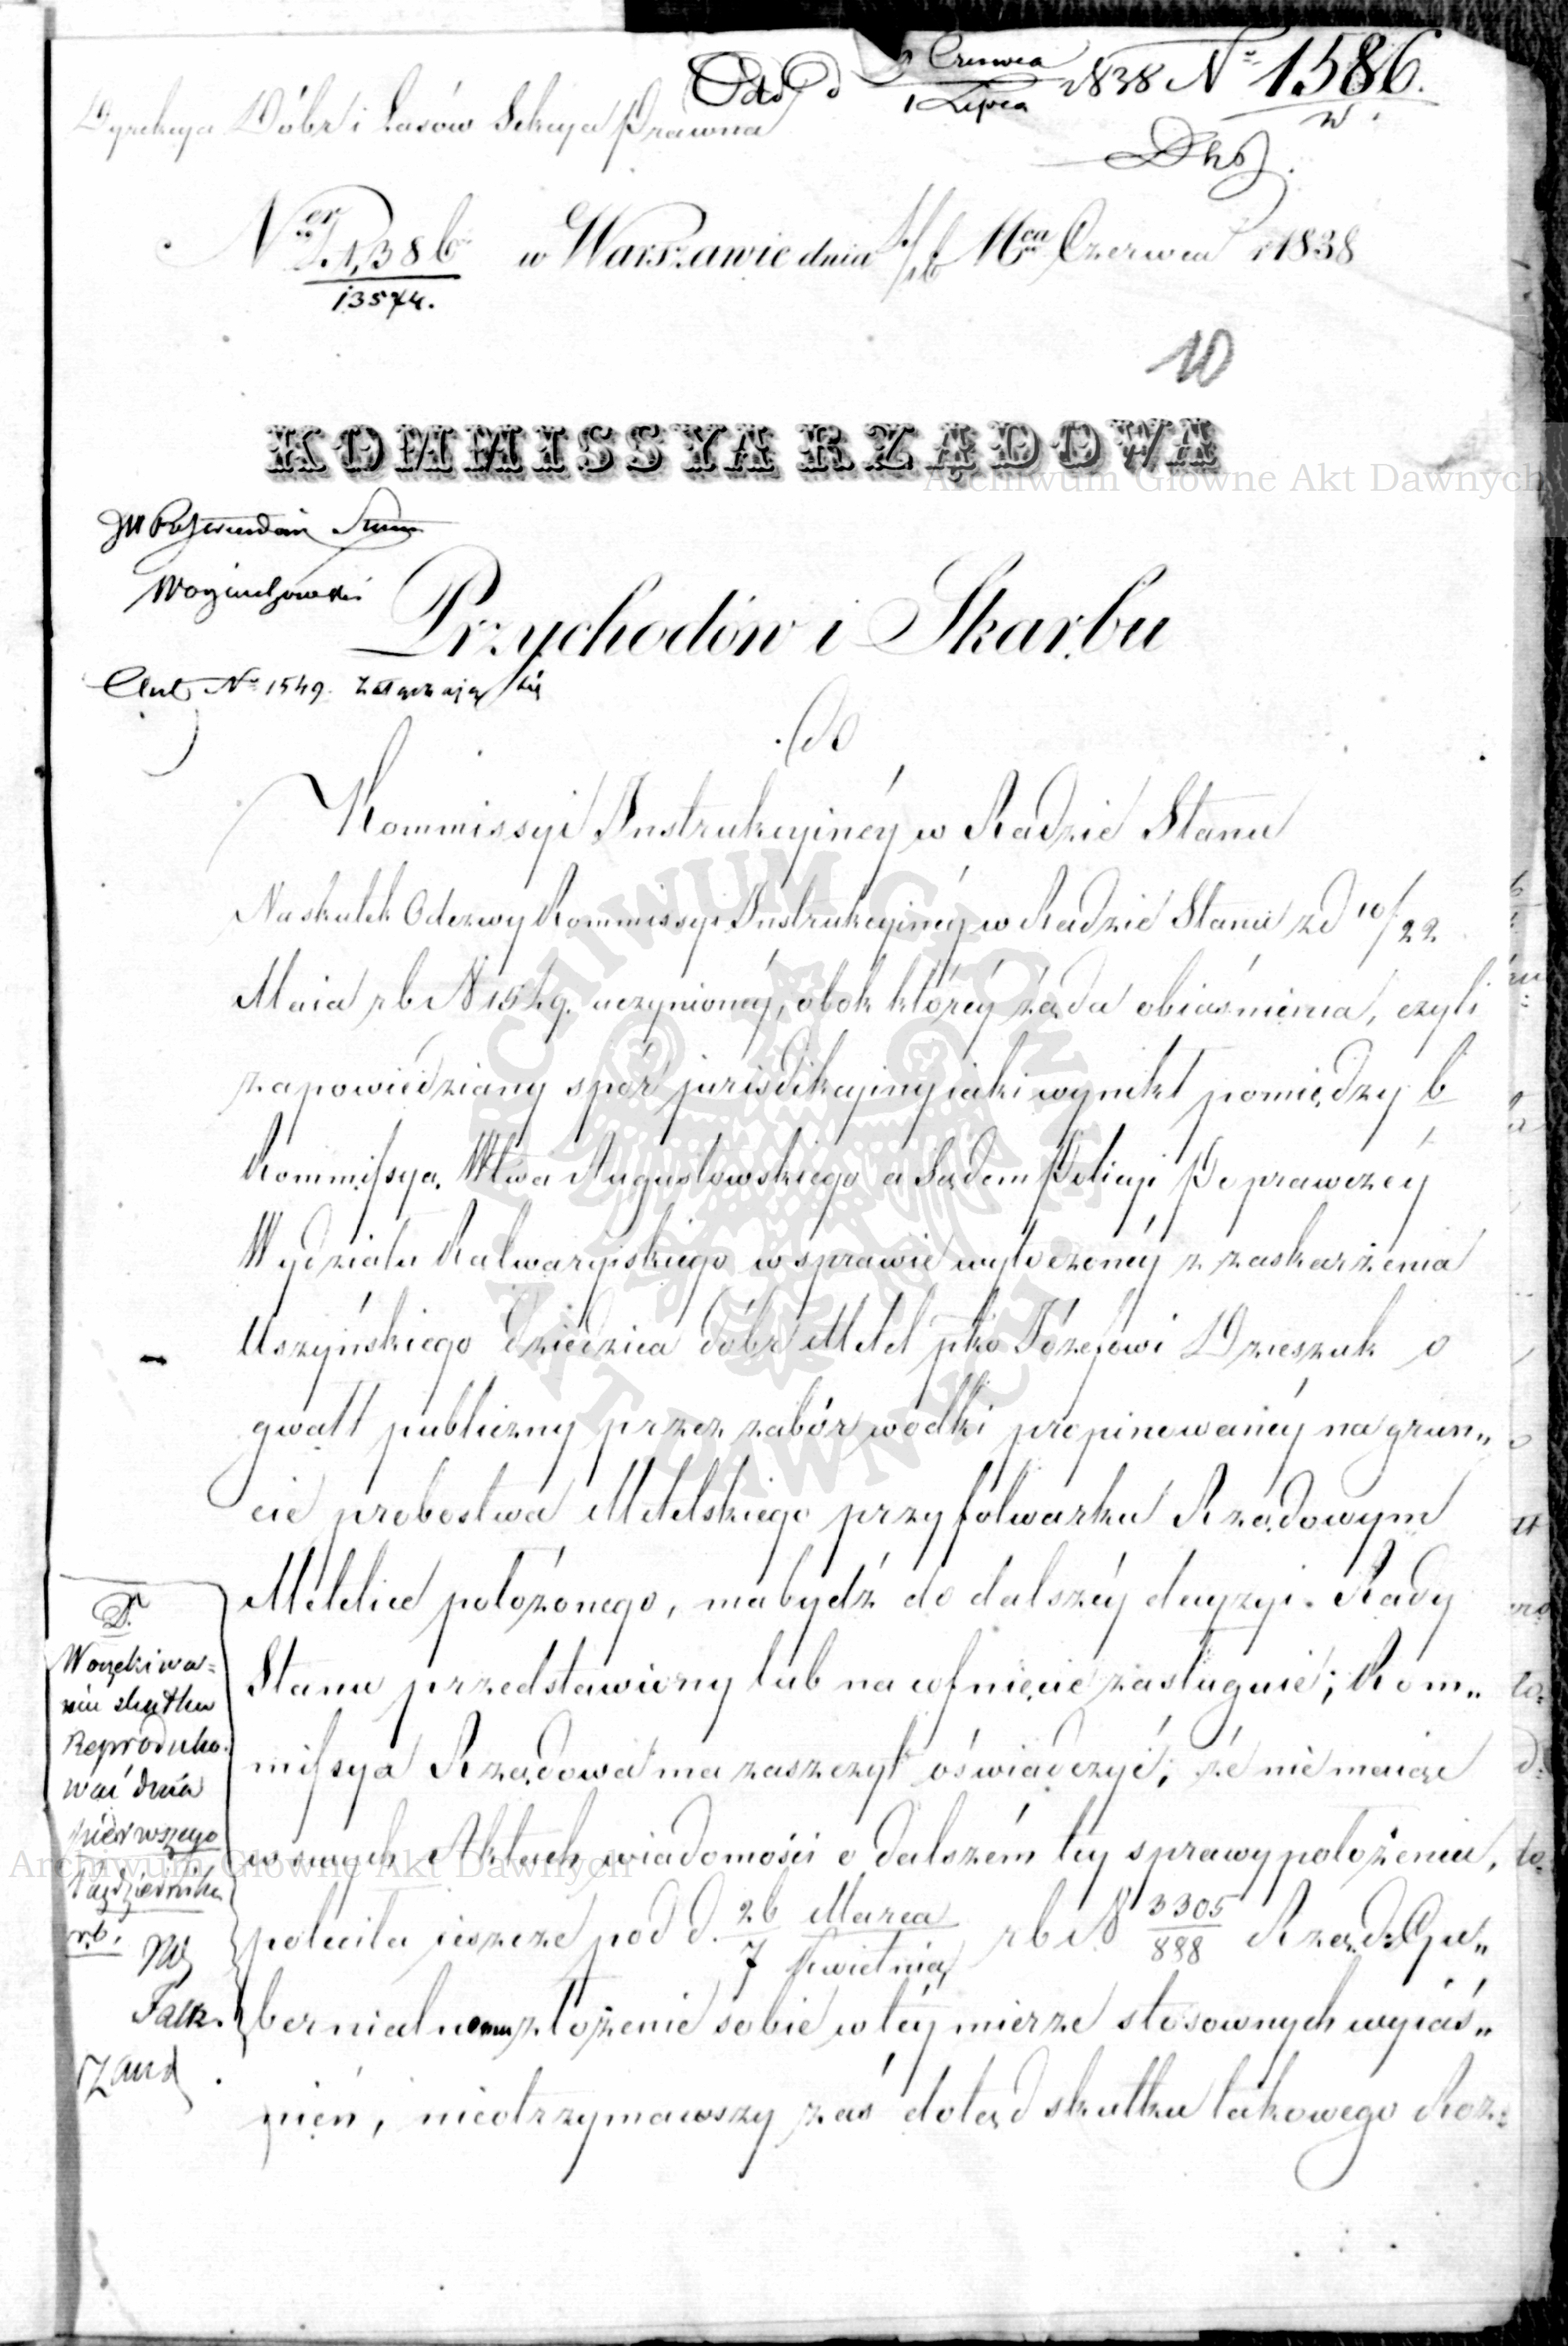 Odd d 1838 N: 1586.
Czerwca
1 Lipca
Dyrekcya Dóbr i Lasów Sekcya Prawna
N 1,386
13574.
w Warszawie dnia 4/16 Mca Czerwca r 1838
10
KOMMISSYA RZĄDOWA
Archiwum Główne Akt Dawnych
JW Referendarz Stanu
Woyciechowski
Przychodów i Skarbu
Ant. N: 1549. załączają się
do
Kommissyi Instrukcyinéy w Radzie Stanu
Na skutek Odezwy Kommissyi Instrukcyinéy w Radzie Stanu z d 10/22
Maia rb N 1549. uczynionéy, obok któréy żąda obiaśnienia, czyli
zapowiedziany spór jurisdikcyiny iaki wynikł pomiędzy b
Kommissyą Wtwa Augustowskiego a Sądem Policyi Poprawczéy
Wydziału Kalwaryiskiego w sprawie wytoczonéy z zaskarżenia
Uszyńskiego dziedzica dóbr Metel pko Józefowi Drzeszuk o
gwałt publiczny przez zabór wódki propinowanéy na grun„
cie probostwa Metelskiego przy folwarku Rządowym
Metelice położonego, ma bydź do dalszéy decyzyi Rady
Stanu przedstawiony lub na cofnięcie zasługuie; Kom„
missya Rządowa ma zaszczyt oświadczyć, że nie maiąc
w swych Aktach wiadomości o dalszém téy sprawy położeniu,
poleciła ieszcze pod d. 26 Marca / 7 Kwietnia rb N 3305/888 Rząd: Gu„
bernialnemu złożenie sobie w téy mierze stosownych wyiaś„
nień, nieotrzymawszy zaś dotąd skutku takowego Roz:
D.
W oczekiwa=
niu skutku
Reproduko.
wać dnia
pierwszego
Października
r.b.
Archiwum Główne Akt Dawnych
ARCHIWUM GŁÓWNE AKT DAWNYCH